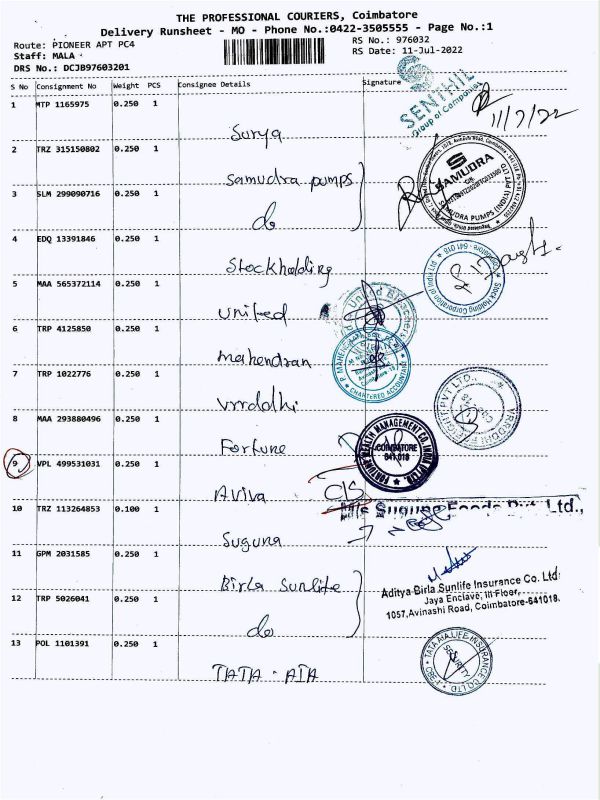 THE PROFESSIONAL COURIERS, Coimbatore
Delivery Runsheet - MO - Phone No.:0422-3505555 - Page No.:1
Route: PIONEER APT PC4
RS No.: 976032
Staff: MALA
RS Date: 11-Jul-2022
DRS No.: DCJB97603201
S No Consignment No Weight PCS Consignee Details Signature
SENTHIL
Group of Companies
11/7/22
1 MTP 1165975 0.250 1
Surya
2 TRZ 315150802 0.250 1
Samudra pumps
SAMUDRA
SAMUDRA PUMPS (INDIA) PVT LTD
3 SLM 299090716 0.250 1
do
4 EDQ 13391846 0.250 1
Stockholding
Stock Holding Corporation of India Ltd
5 MAA 565372114 0.250 1
United
6 TRP 4125850 0.250 1
Mahendran
CHARTERED ACCOUNTANT
7 TRP 1022776 0.250 1
Vrrddhi
8 MAA 293880496 0.250 1
Fortune
FORTUNE HEALTH MANAGEMENT CO. INDIA
COIMBATORE
641 018
9 VPL 499531031 0.250 1
Aviva
M/s Suguna Foods Pvt. Ltd.,
10 TRZ 113264853 0.100 1
Suguna
11 GPM 2031585 0.250 1
Birla Sunlife
Aditya Birla Sunlife Insurance Co. Ltd.
Jaya Enclave, III Floor,
1057, Avinashi Road, Coimbatore-641018.
12 TRP 5026041 0.250 1
do
13 POL 1101391 0.250 1
TATA . AIA
TATA AIA LIFE INSURANCE CO LTD
SECURITY